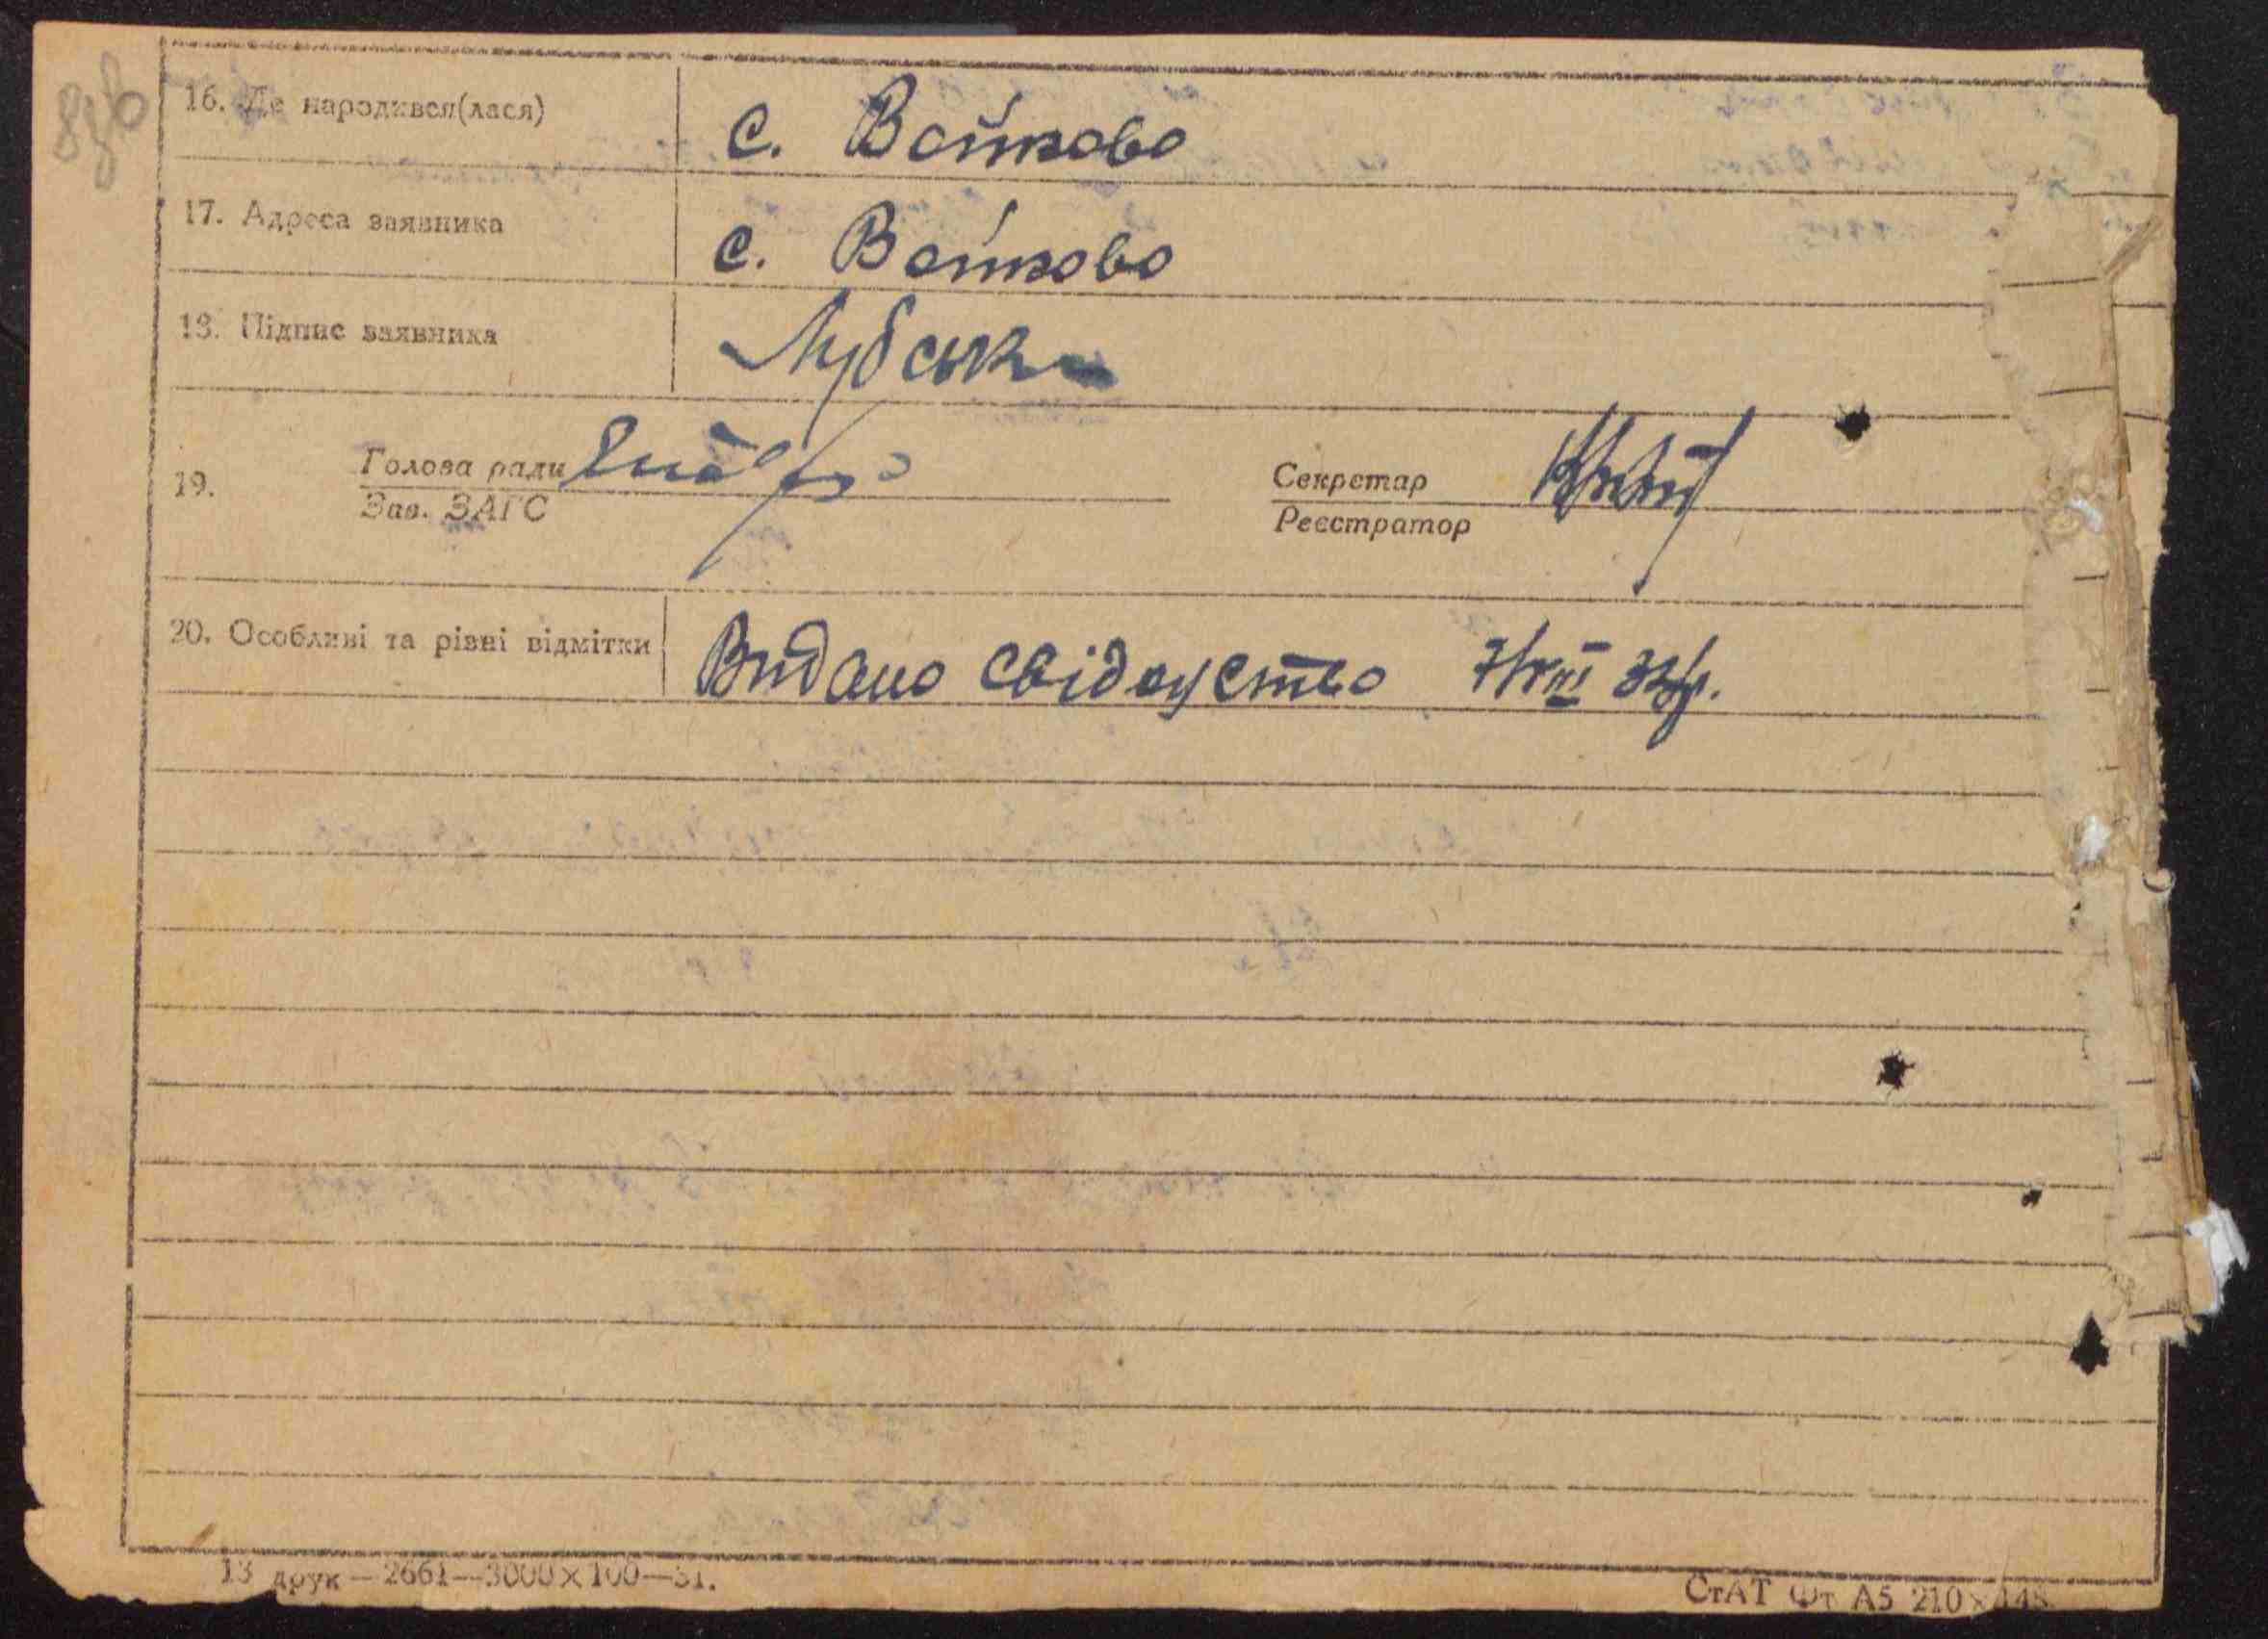 8зв
16. Де народився(лася) с. Войтово
17. Адреса заявника с. Войтово
18. Підпис заявника Лубськ
19. Голова ради Секретар
Зав. ЗАГС Реєстратор
20. Особливі та різні відмітки Видано свідоцтво 7/VIII 32 р.
13 друк — 2661—3000×100—31.
СтАТ Фт А5 210×148